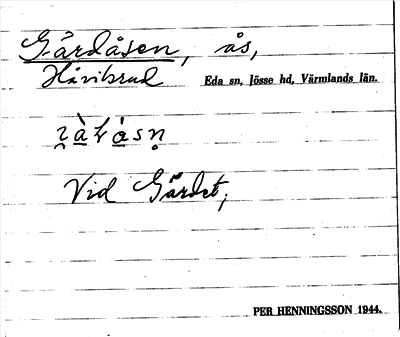 Gärdåsen, ås,
Håvibrud Eda sn, Jösse hd, Värmlands län.
Vid Gärdet,
PER HENNINGSSON 1944.